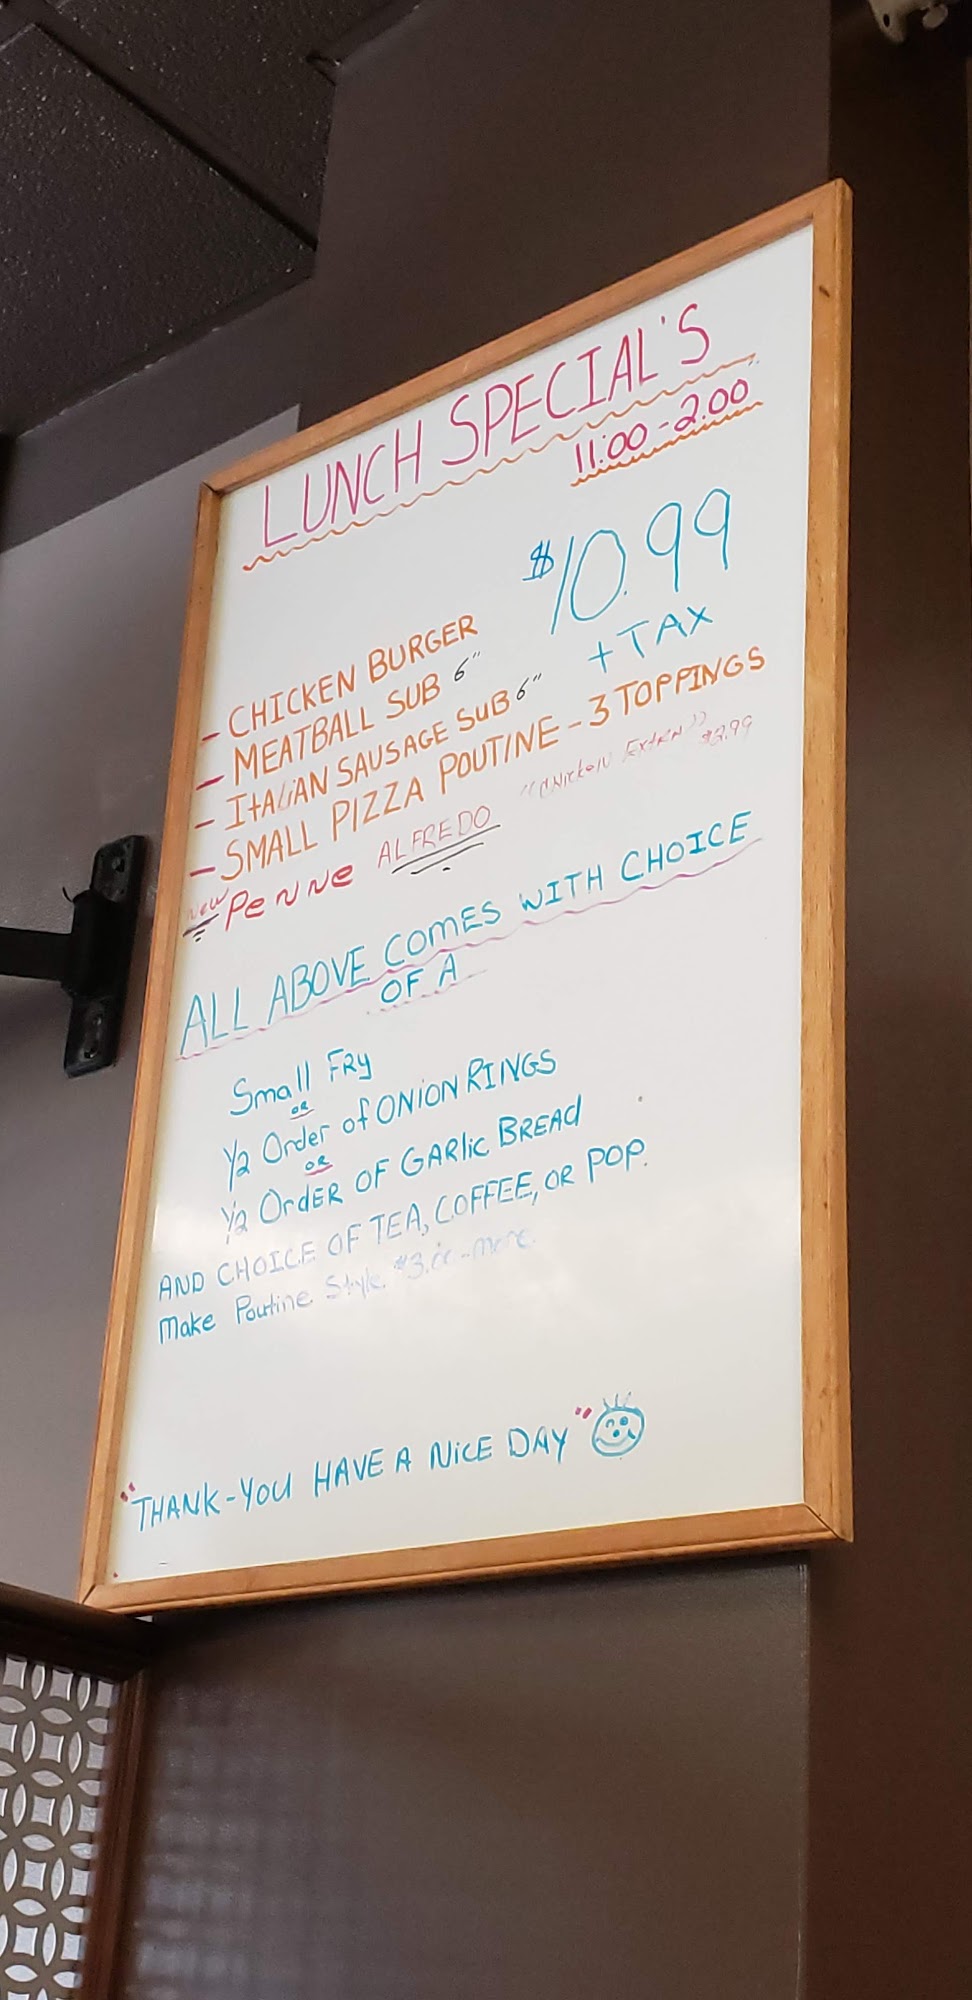 LUNCH SPECIAL'S
11:00 - 2.00
$10.99
+ TAX
- CHICKEN BURGER
- MEATBALL SUB 6"
- ITALIAN SAUSAGE SUB 6"
- SMALL PIZZA POUTINE - 3 TOPPINGS
New Penne ALFREDO "Chicken Extra" $2.99
ALL ABOVE COMES WITH CHOICE
OF A
Small FRY
OR
1/2 Order of ONION RINGS
OR
1/2 OrdER OF GARlic BREAd
AND CHOICE OF TEA, COFFEE, OR POP.
Make Poutine Style. $3.00 more.
"THANK-YOU HAVE A NICE DAY"